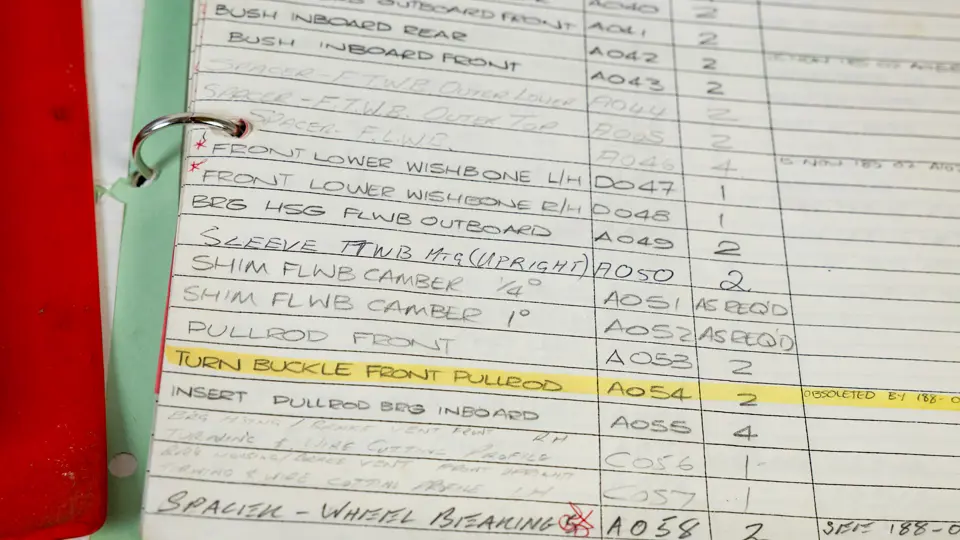 OUTBOARD FRONT A040 2
BUSH INBOARD REAR A041 2
BUSH INBOARD FRONT A042 2
A043 2
SPACER - F.T.W.B. OUTER LOWER A044 2
SPACER - F.T.W.B. OUTER TOP A045 2
SPACER - F.L.W.B. A046 4
* FRONT LOWER WISHBONE L/H D047 1
* FRONT LOWER WISHBONE R/H D048 1
BRG HSG FLWB OUTBOARD A049 2
SLEEVE TTWB MTG (UPRIGHT) A050 2
SHIM FLWB CAMBER 1/4° A051 AS REQ'D
SHIM FLWB CAMBER 1° A052 AS REQ'D
PULLROD FRONT A053 2
TURN BUCKLE FRONT PULLROD A054 2 OBSOLETED BY 188-0
INSERT PULLROD BRG INBOARD A055 4
BRG HSING/BRAKE VENT FRONT RH
TURNING & WIRE CUTTING PROFILE C056 1
BRG HOUSING/BRAKE VENT FRONT UPRIGHT
TURNING & WIRE CUTTING PROFILE LH C057 1
SPACER - WHEEL BEARING A058 2 SEE 188-0